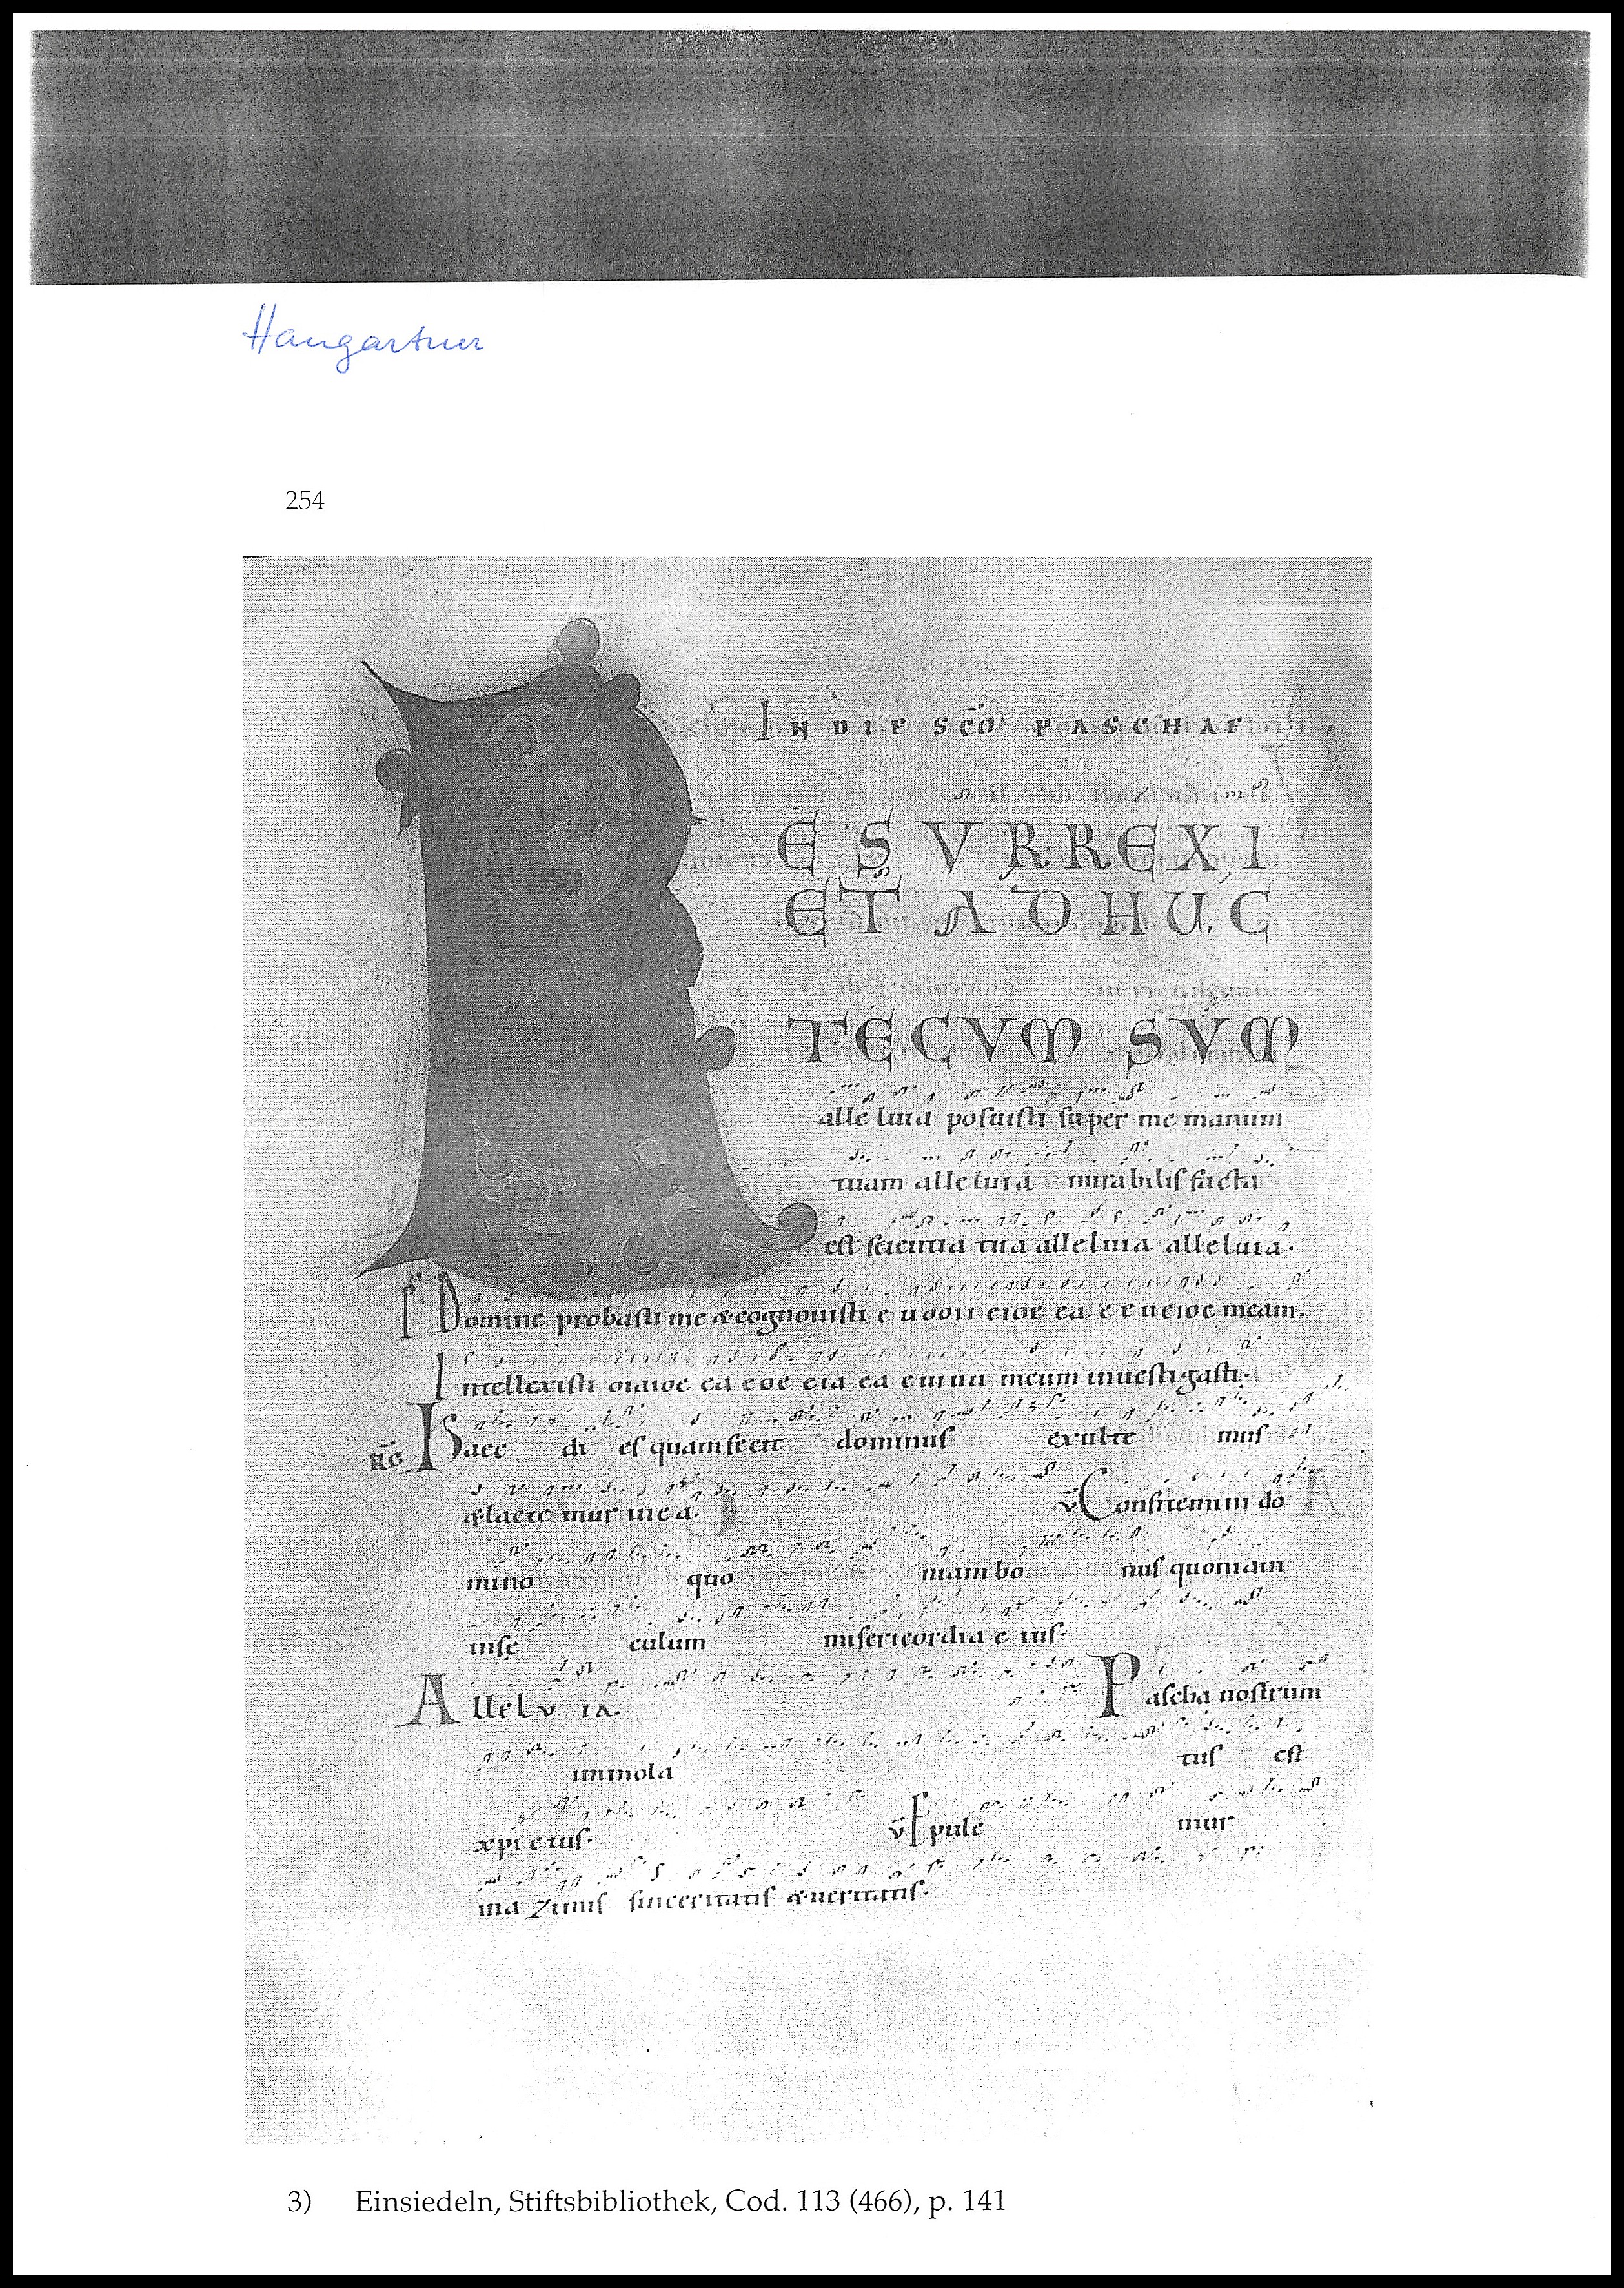 Hangartner
254
IN DIE SCO PASCHAE
RESURREXI
ET ADHUC
TECVM SVM
alleluia posuisti super me manum
tuam alleluia mirabilis facta
est scientia tua alleluia alleluia.
Domine probasti me & cognouisti e u oou eioe ea e e u eioe meam.
Intellexisti oiaioe ea eoe eia ea e meum inuestigasti.
RG Haec di es quam fecit dominus exulte mus
& laete mur in e a. v Confitemini do
mino quo niam bo nus quoniam
inse culum misericordia e ius.
Allelv ia. Pascha nostrum
immola tus est
xpi c tus. v Epule mur
in a zimis sinceritatis & ueritatis.
3) Einsiedeln, Stiftsbibliothek, Cod. 113 (466), p. 141